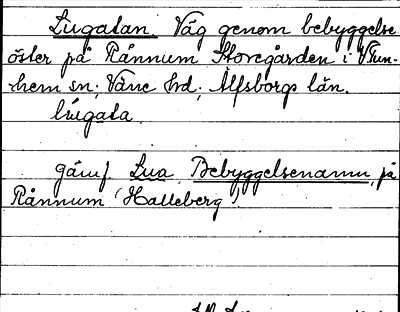 Lugatan. Väg genom bebyggelse
öster på Rånnum Storegården i V Tun-
hem sn; Väne hd; Älfsborgs län.
lúgata.
Jämf. Lua, Bebyggelsenamn, på
Rånnum (Halleberg)